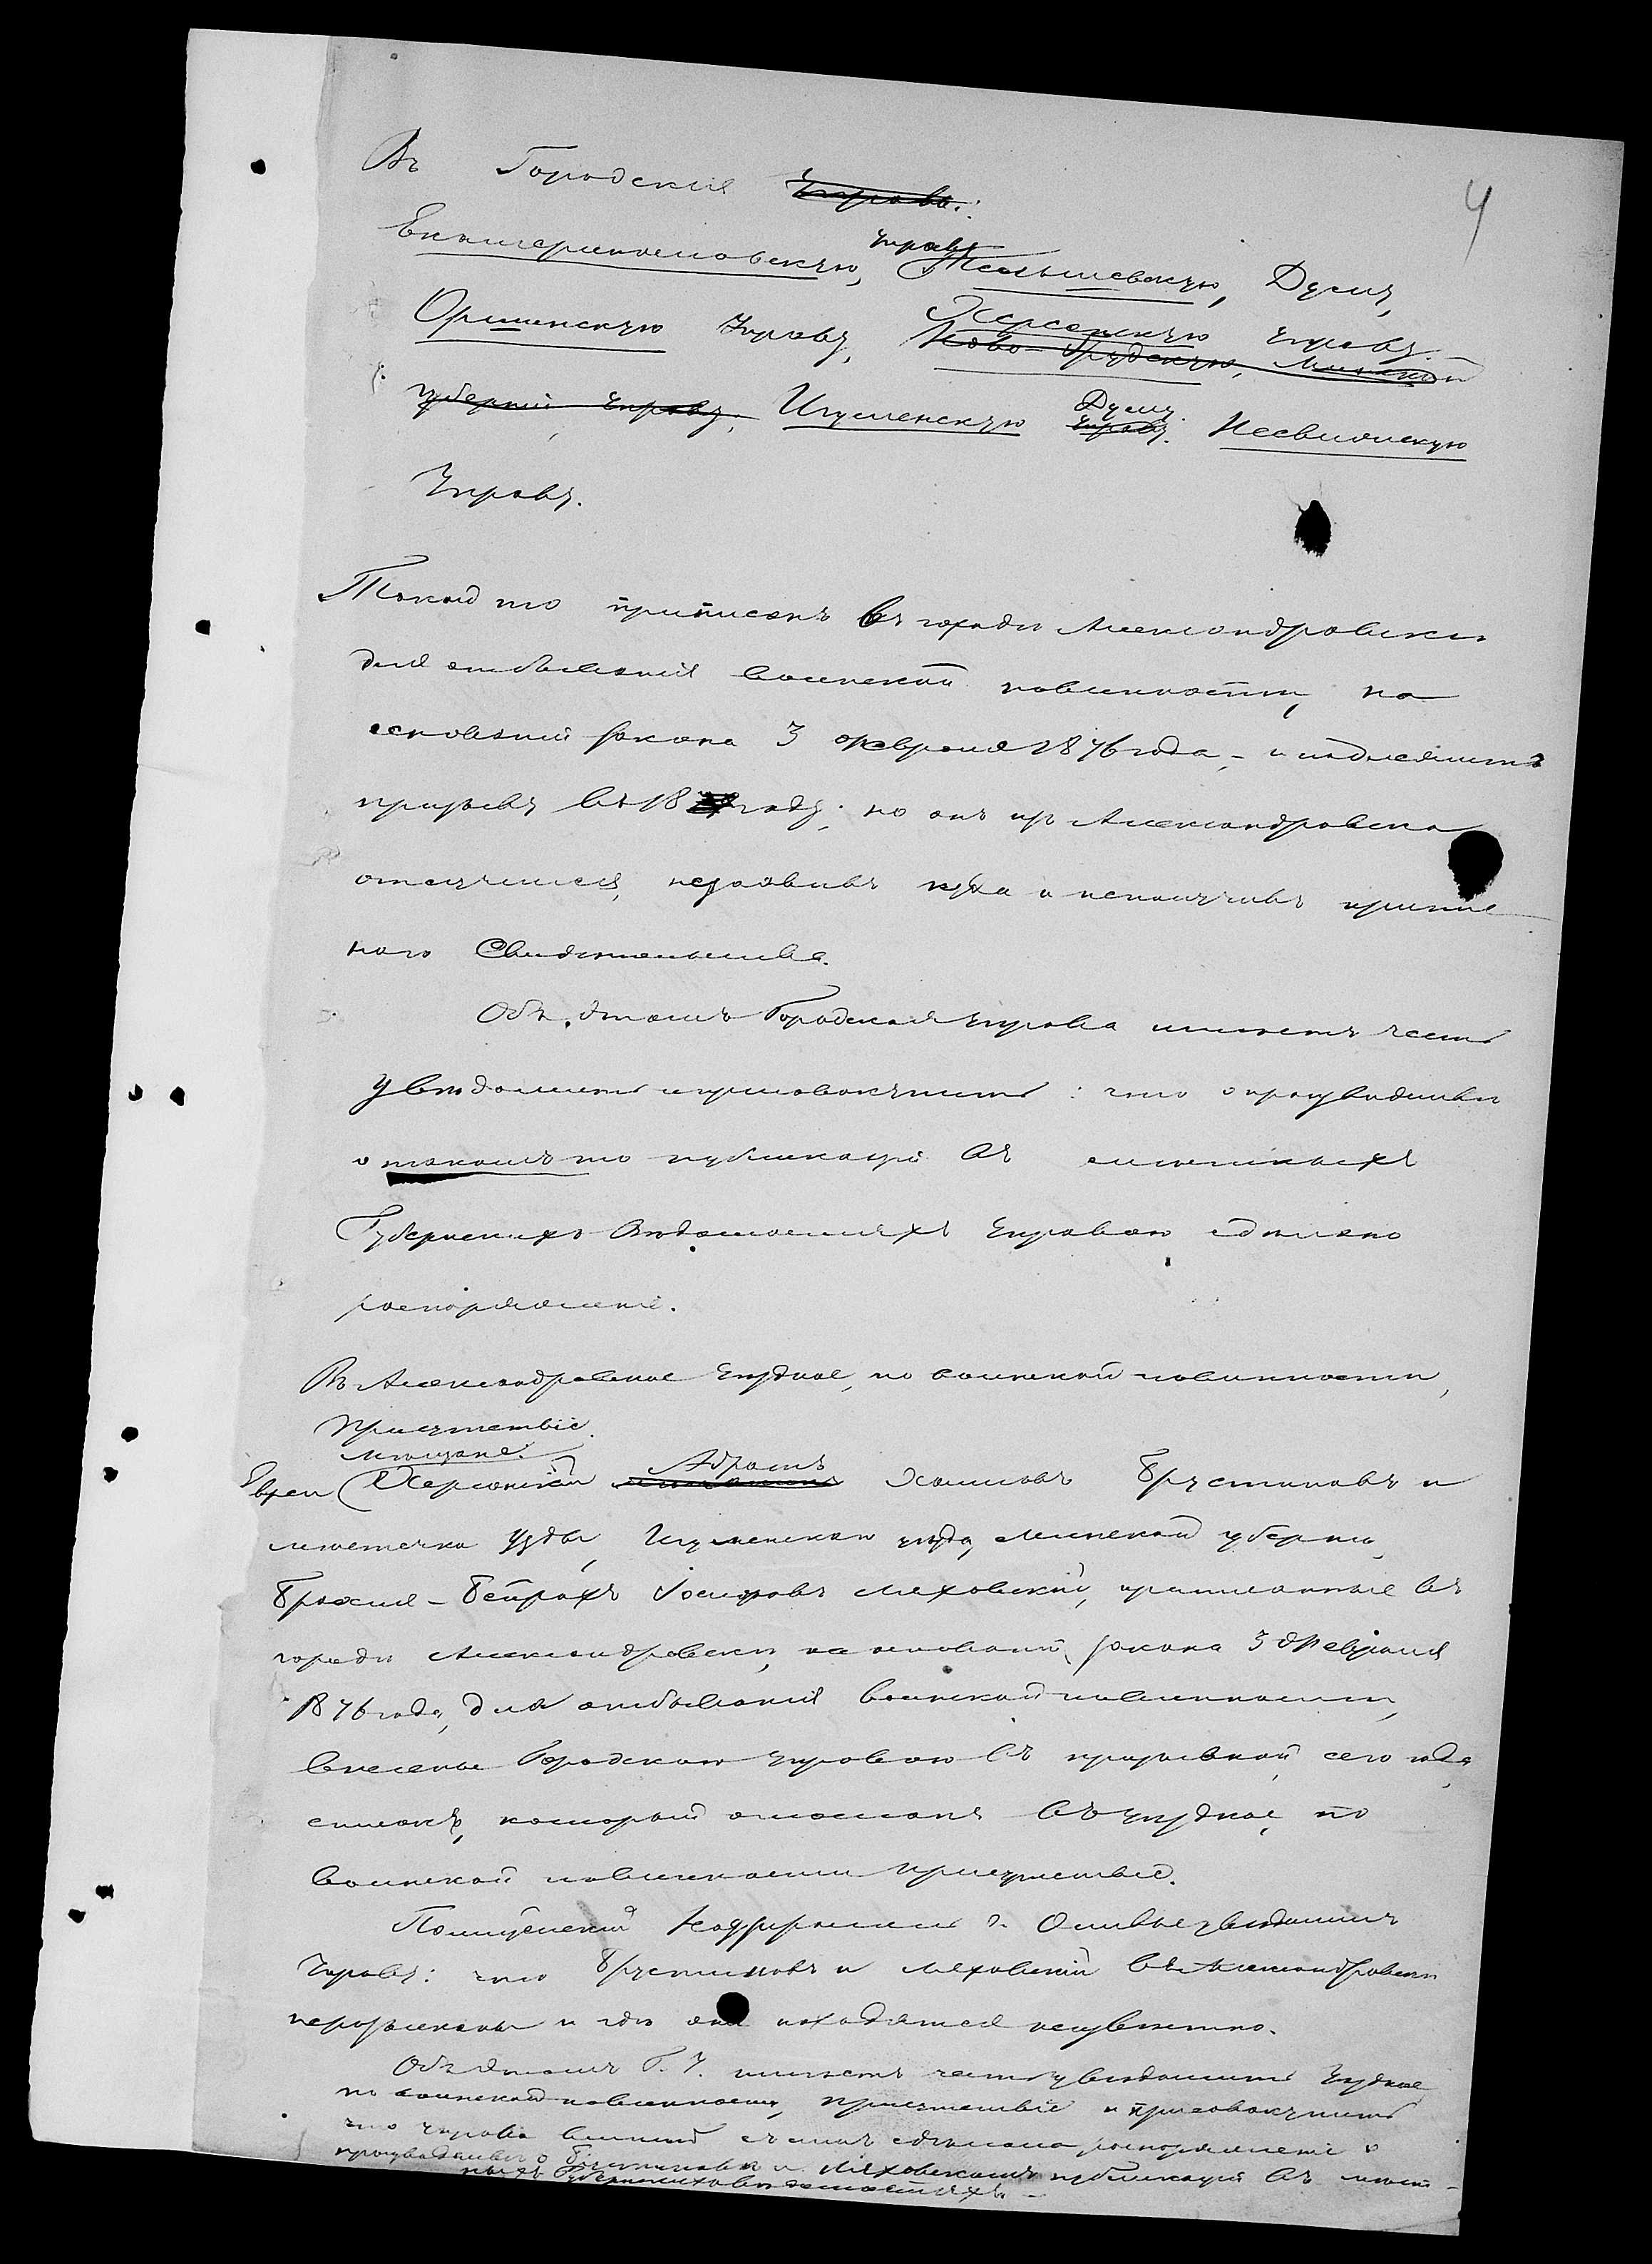 4
Въ Городскія Управы:
Екатеринославскую Управу, Тельшевскую Думу,
Оршинскую Управу, Херсонскую Управу
Ново-Грудскую, Минской
губерніи Управу, Игуменскую Управу Думу. Несвижскую
Управу.
Такой то приписанъ въ городѣ Александровскѣ
для отбыванія воинской повинности, на
основаніи закона 3 февраля 1876 года, - и подлежитъ
призыву въ 18 году; но онъ изъ Александровска
отлучился, незаявивъ куда и неполучивъ припис
наго Свидетельства.
Объ этомъ Городская Управа имѣетъ честь
увѣдомить и присовокупить: что о производствѣ
о такомъ то публикаціи въ мѣстныхъ
Губернскихъ Вѣдомостяхъ Управою сдѣлано
распоряженіе.
Въ Александровское Уѣздное, по воинской повинности,
Присутствіе.
мѣщане
Евреи Херсонскій Абрамъ Хаимовъ Брустиновъ и
мѣстечка Узды, Игуменскаго уѣзда, Минской губерніи,
Ляховскій, приписанные въ
городѣ Александровскѣ, на основаніи закона 3 Февраля
1876 года, для отбыванія воинской повинности,
внесены Городскою Управою въ призывной, сего года,
списокъ, который отосланъ въ Уѣздное, по
воинской повинности Присутствіе.
Полицейскій Надзиратель увѣдомилъ
Управу: что Брустиновъ и Ляховскій въ Александровскѣ
неразысканы и гдѣ они находятся неизвѣстно.
Объ этомъ Г. У. имѣетъ честь увѣдомить Уѣздное
по воинской повинности, Присутствіе и присовокупить
что Управа вмѣстѣ съ симъ сдѣлала распоряженіе о
производствѣ о Брустиновѣ и Ляховскомъ публикаціи въ мѣст-
ныхъ Губернскихъ вѣдомостяхъ. -